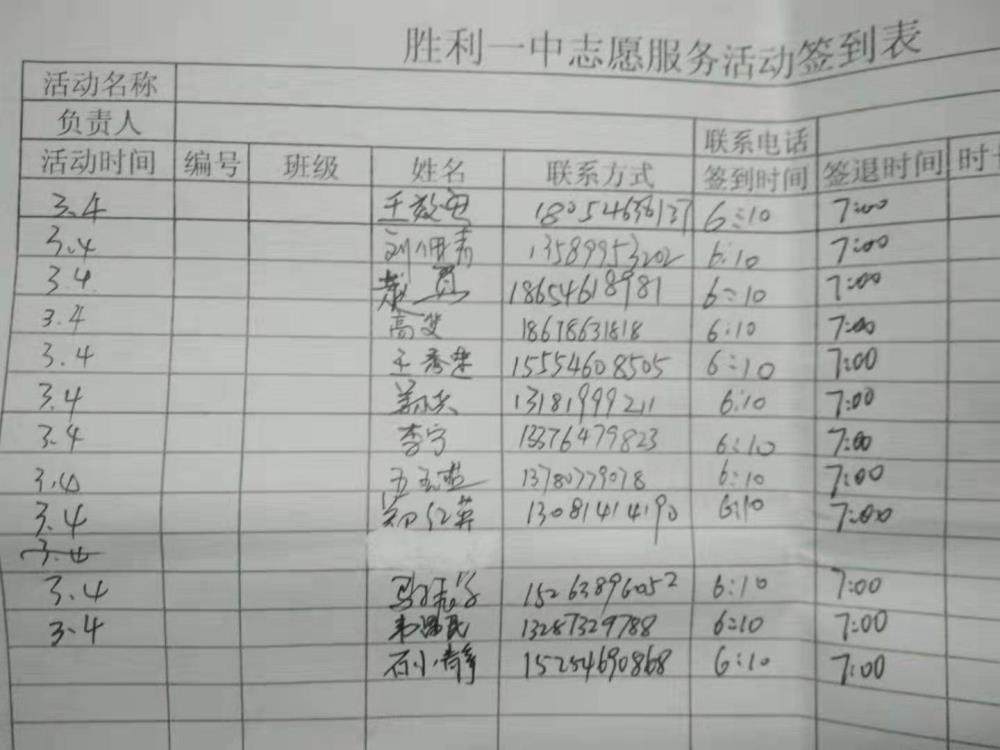 胜利一中志愿服务活动签到表
活动名称
负责人 联系电话
活动时间 编号 班级 姓名 联系方式 签到时间 签退时间
3.4 18054656137 6:10 7:00
3.4 13589953202 6:10 7:00
3.4 18654618981 6:10 7:00
3.4 高斐 18678631818 6:10 7:00
3.4 15554608505 6:10 7:00
3.4 13181999211 6:10 7:00
3.4 李宁 13376479823 6:10 7:00
3.4 13780779078 6:10 7:00
3.4 郑红英 13081414190 6:10 7:00
3.4
3.4 15263896052 6:10 7:00
3.4 13287329788 6:10 7:00
石小静 15254690868 6:10 7:00